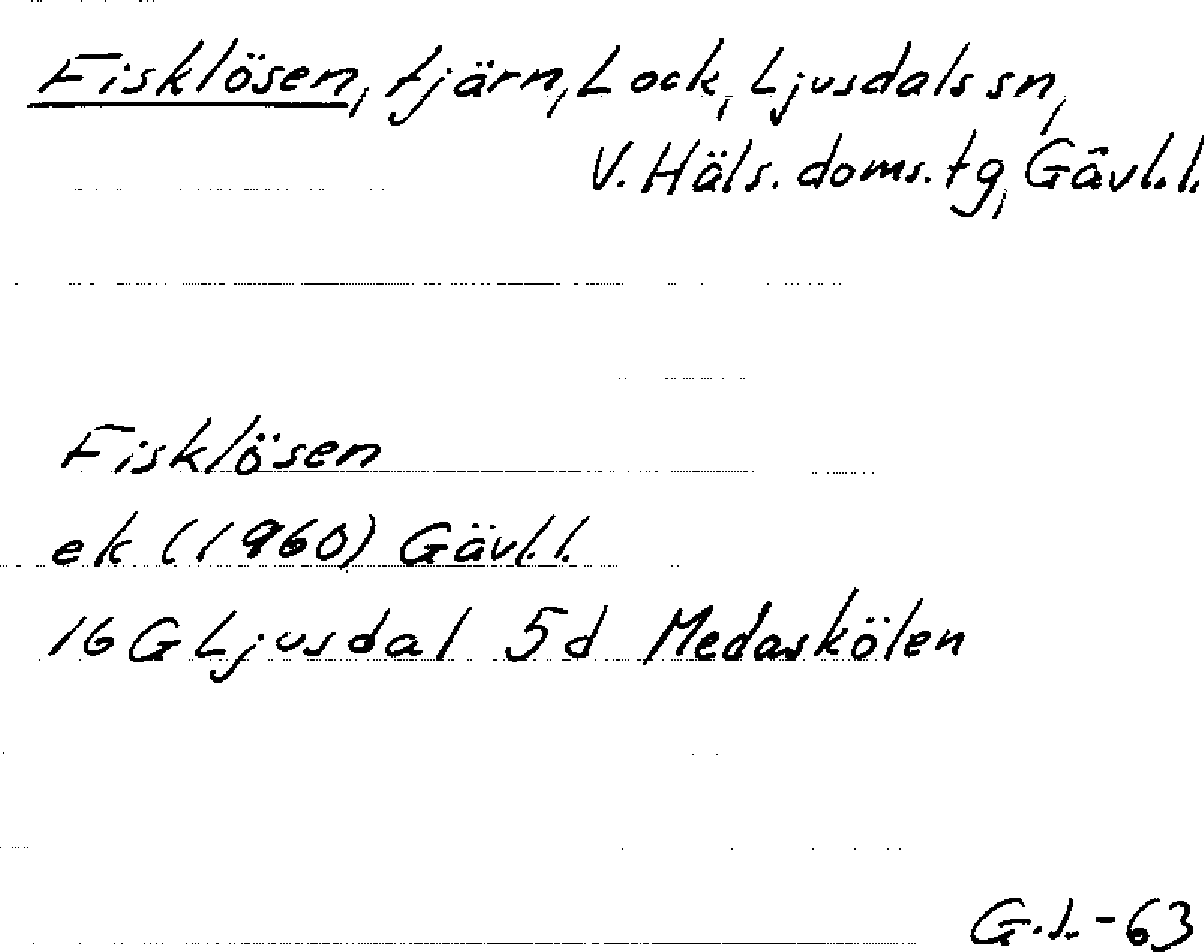 Fisklösen, tjärn, Lock, Ljusdals sn,
V. Häls. doms. tg, Gävl.l.
Fisklösen
ek (1960) Gävl.l.
16 G Ljusdal 5d Medaskölen
G.L.-63